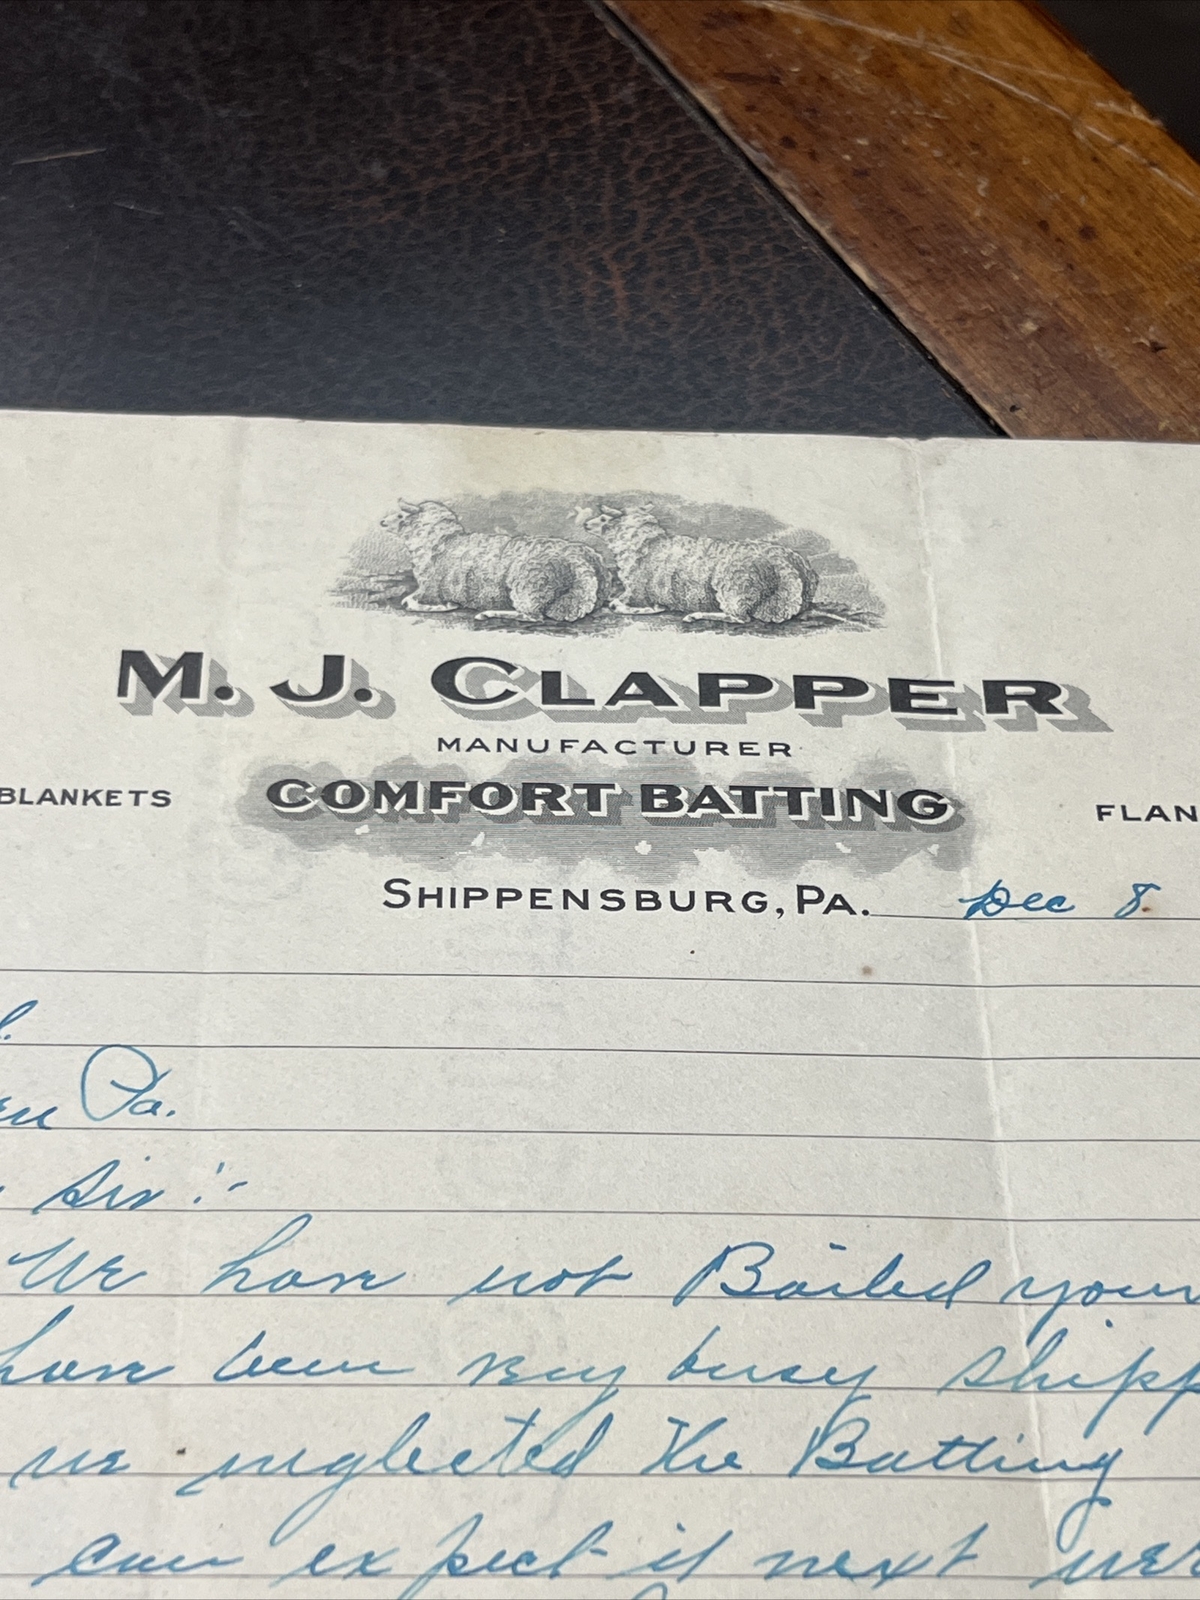 M. J. CLAPPER
MANUFACTURER
BLANKETS COMFORT BATTING FLAN
SHIPPENSBURG, PA. Dec 8
Pa.
Sir :-
We have not Bailed your
have been very busy shipp
we neglected the Batting
can expect it next